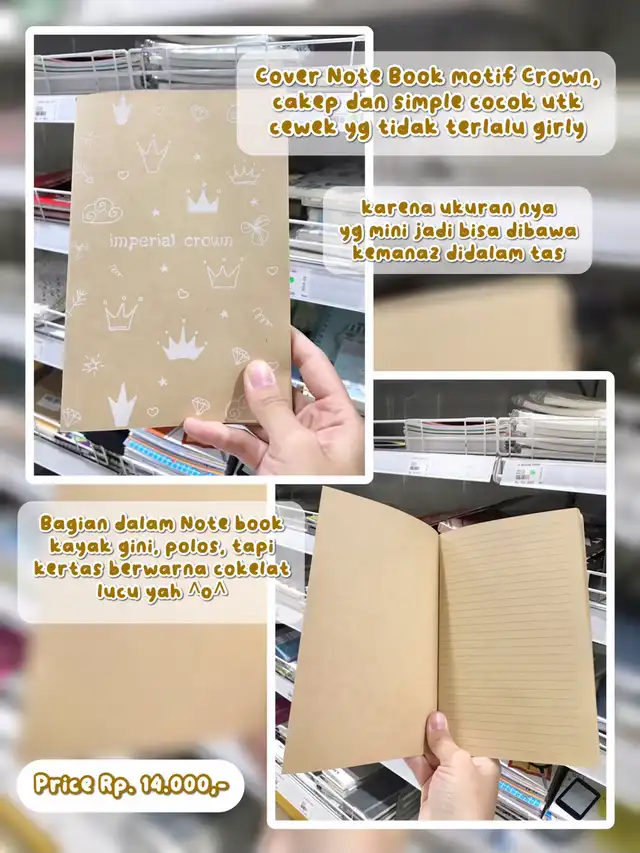 Cover Note Book motif Crown,
cakep dan simple cocok utk
cewek yg tidak terlalu girly
imperial crown
karena ukuran nya
yg mini jadi bisa dibawa
kemana2 didalam tas
Bagian dalam Note book
kayak gini, polos, tapi
kertas berwarna cokelat
lucu yah ^o^
Price Rp. 14.000,-